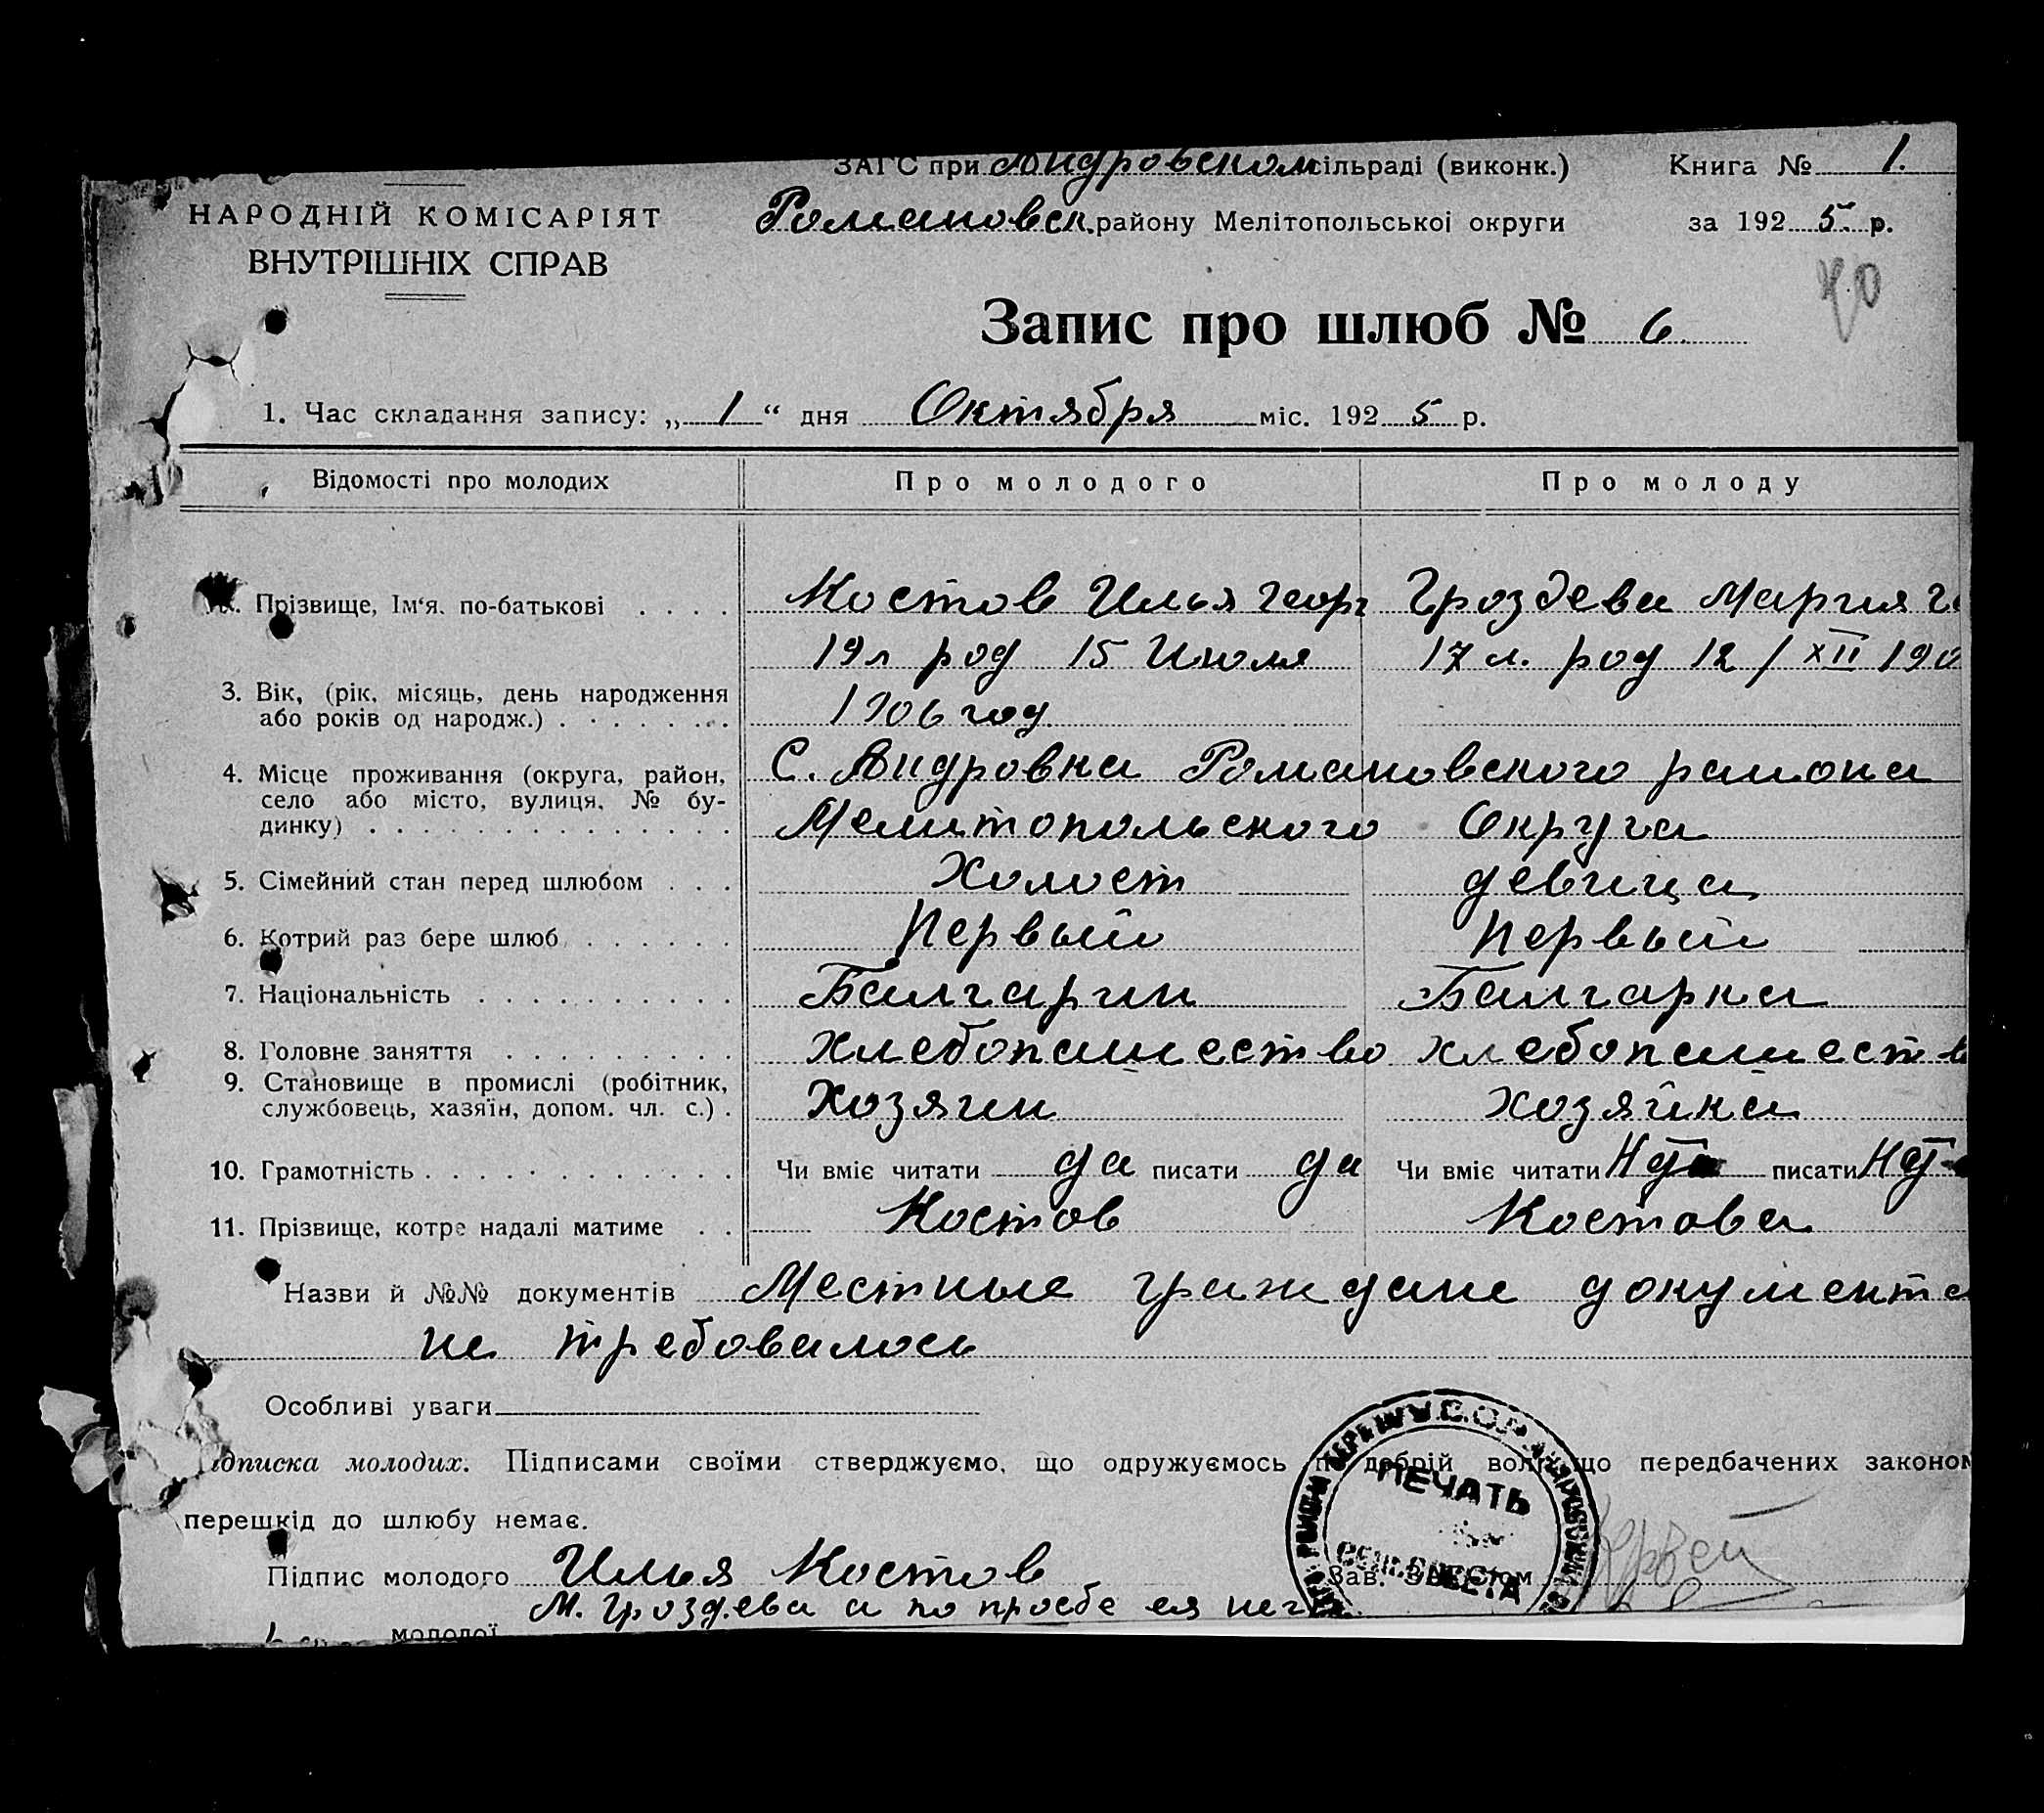 ЗАГС при Андровском сільраді (виконк.) Книга № 1.
НАРОДНІЙ КОМІСАРІЯТ
Романовск. району Мелітопольської округи за 1925. р.
ВНУТРІШНІХ СПРАВ
Запис про шлюб № 6.
1. Час складання запису: „ 1 “ дня Октября міс. 1925 р.
Відомості про молодих Про молодого Про молоду
Прізвище, Ім‘я. по-батькові . . . . Костов Илья Георг Гроздева Мария Ге
19 л род 15 Июля 17 л. род 12 / XII 190
3. Вік, (рік, місяць, день народження
або років од народж.) . . . . . . . 1906 год
4. Місце проживання (округа, район, С. Андровка Романовского района
село або місто, вулиця, № бу-
динку) . . . . . . . . . . . . . . Мелитопольского Округа
5. Сімейний стан перед шлюбом . . . Холост девица
6. Котрий раз бере шлюб . . . . . . Первый Первый
7. Національність . . . . . . . . . . Балгарин Балгарка
8. Головне заняття . . . . . . . . . хлебопашество хлебопашеств
9. Становище в промислі (робітник,
службовець, хазяїн, допом. чл. с.) . Хозяин хозяйка
10. Грамотність . . . . . . . . . . . . Чи вміє читати да писати да Чи вміє читати писати
11. Прізвище, котре надалі матиме . . Костов Костова
Назви й №№ документів Местные граждане документа
не требовалось
Особливі уваги
дписка молодих. Підписами своїми стверджуємо, що одружуємось п добрій волі що передбачених законом
ПЕЧАТЬ
перешкід до шлюбу немає.
Підпис молодого Илья Костов Зав.
М. Гроздева а по просбе ея нег
молодої